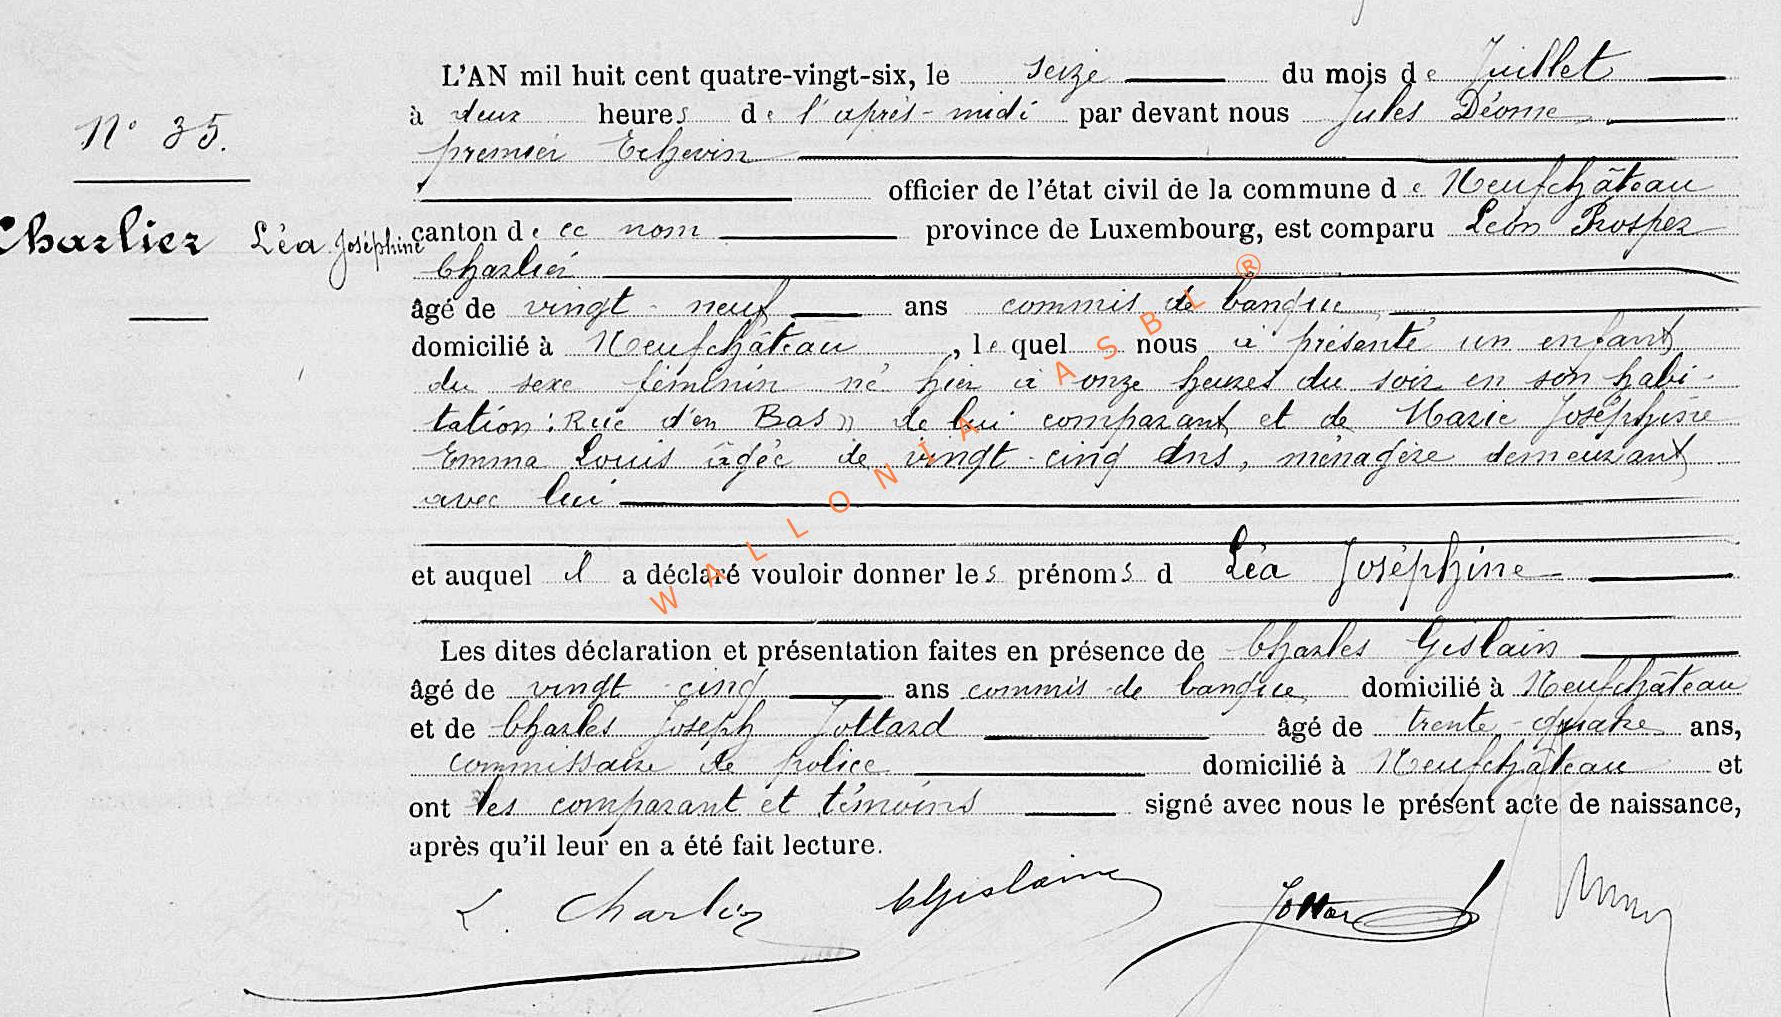 N° 35.
Charlier Léa Joséphine
L'AN mil huit cent quatre-vingt-six, le seize du mois de Juillet
à deux heures de l'après-midi par devant nous Jules Déome
premier Echevin
officier de l'état civil de la commune de Neufchâteau
canton de ce nom province de Luxembourg, est comparu Léon Prosper
Charlier
âgé de vingt-neuf ans commis de banque
domicilié à Neufchâteau, lequel nous a présenté un enfant
du sexe féminin né hier à onze heures du soir en son habi-
tation: Rue d'en Bas » de lui comparant et de Marie Joséphine
Emma Louis âgée de vingt-cinq ans, ménagère demeurant
avec lui
et auquel il a déclaré vouloir donner les prénoms d Léa Joséphine
Les dites déclaration et présentation faites en présence de Charles Gislain
âgé de vingt-cinq ans commis de banque domicilié à Neufchâteau
et de Charles Joseph Jottard âgé de trente-quatre ans,
commissaire de police domicilié à Neufchâteau et
ont les comparant et témoins signé avec nous le présent acte de naissance,
après qu'il leur en a été fait lecture.
L. Charlier CGislain Jottard
WALLONIA ASBL ®